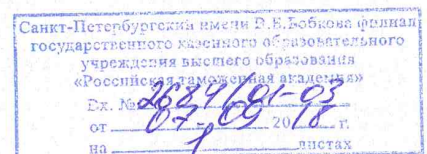 Санкт-Петербургский имени В.Б.Бобкова филиал
государственного казенного образовательного
учреждения высшего образования
«Российская таможенная академия»
Вх. № 2684/01-03
от 07.09 2018 г.
на 1 листах